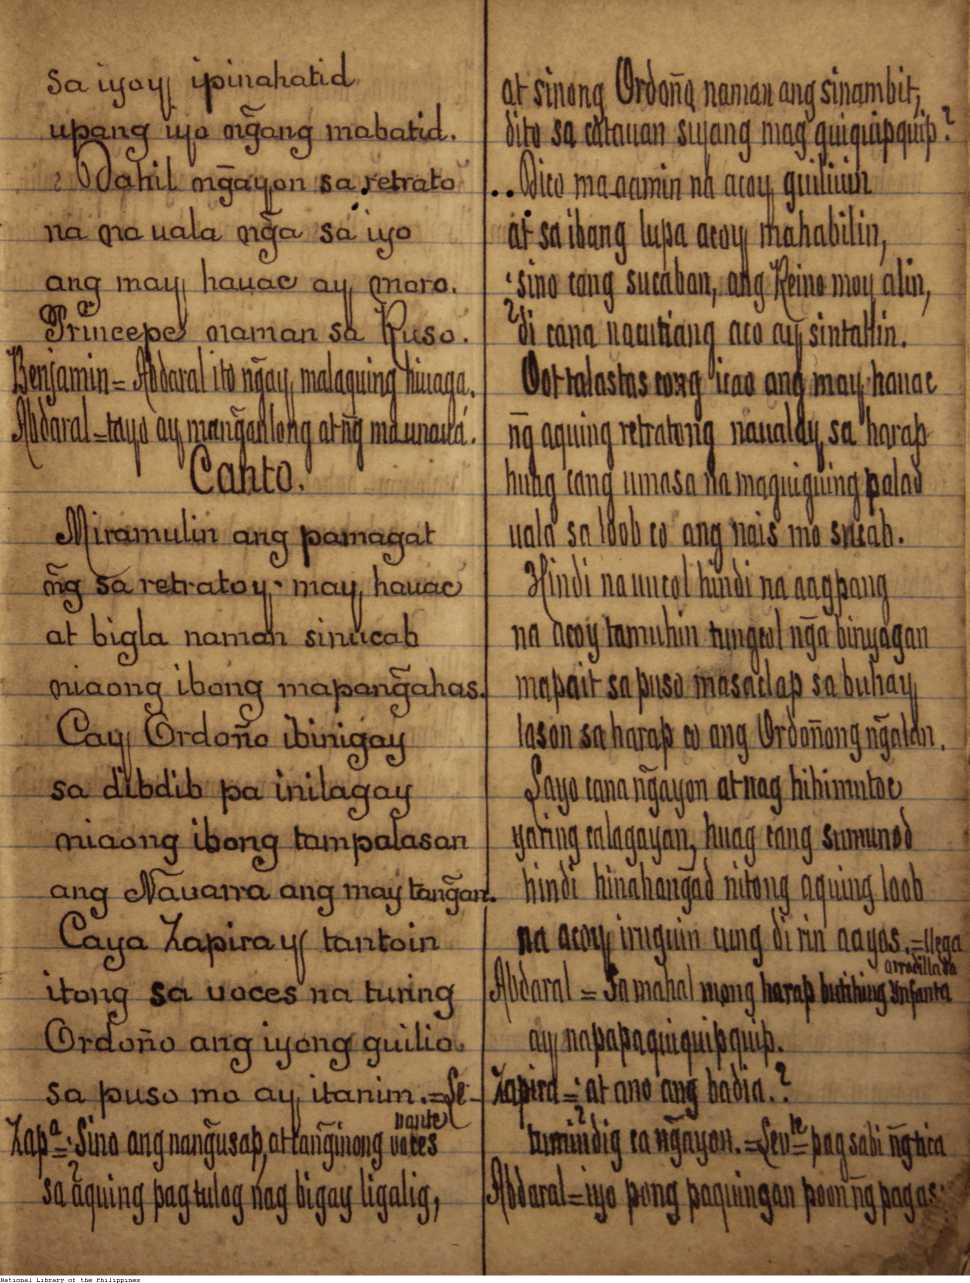 sa iyoy ipinahatid
upang iyo ñgang mabatid.
? Dahil ñgayon sa retrato
na na uala ñga sa iyo
ang may hauac ay moro.
Principe naman sa Ruso.
Benjamin = Abdaral ito ñgay, malaquing hiuaga.
Abdaral = tayo ay mañganlong at ñg ma unaua.
Canto.
Miramulin ang pamagat
ñg sa retratoy may hauac
at bigla naman sinucab
niaong ibong mapañgahas.
Cay Ordoño ibinigay
sa dibdib pa inilagay
niaong ibong tampalasan
ang Nauarra ang may tañgan.
Caya Zapiray tantoin
itong sa voces na turing
Ordoño ang iyong guilio.
sa puso mo ay itanim. = Se
vante
Zapª = Sino ang nañgusap, at tañginong voces
sa aquing pagtulog nag bigay ligalig,
at sinong Ordoña naman ang sinambit,
dito sa catauan siyang mag quiquipquip?
.. Dico ma aamin na acoy guiliuin
at sa ibang lupa acoy mahabilin,
sino cang sucaban, ang Reino moy alin,
di cana nacutiang aco ay sintahin.
Oot talastas cong icao ang may hauac
ñg aquing retratong naualay sa harap
huag cang umasa na maguiguing palad
uala sa loob co ang nais mo sucab.
Hindi na uucol hindi na aagpang
na acoy tamuhin tungcol ñga binyagan
mapait sa puso masaclap sa buhay
lason sa harap co ang Ordoñong ñgalan.
Sayo cana ñgayon at nag hihimutoc
yaring calagayan, huag cang sumunod
hindi hinahañgad nitong aquing loob
na acoy iruguin cung di rin aayos. = llega
arrodillada
Abdaral = Sa mahal mong harap butihing Ynfanta
ay napapaquiquipquip.
Zapira = at ano ang badia.?
tumindig ca ñgayon. = Levte = pag sabi ñg tica
Abdaral = iyo pong paquingan poon ñg pagas